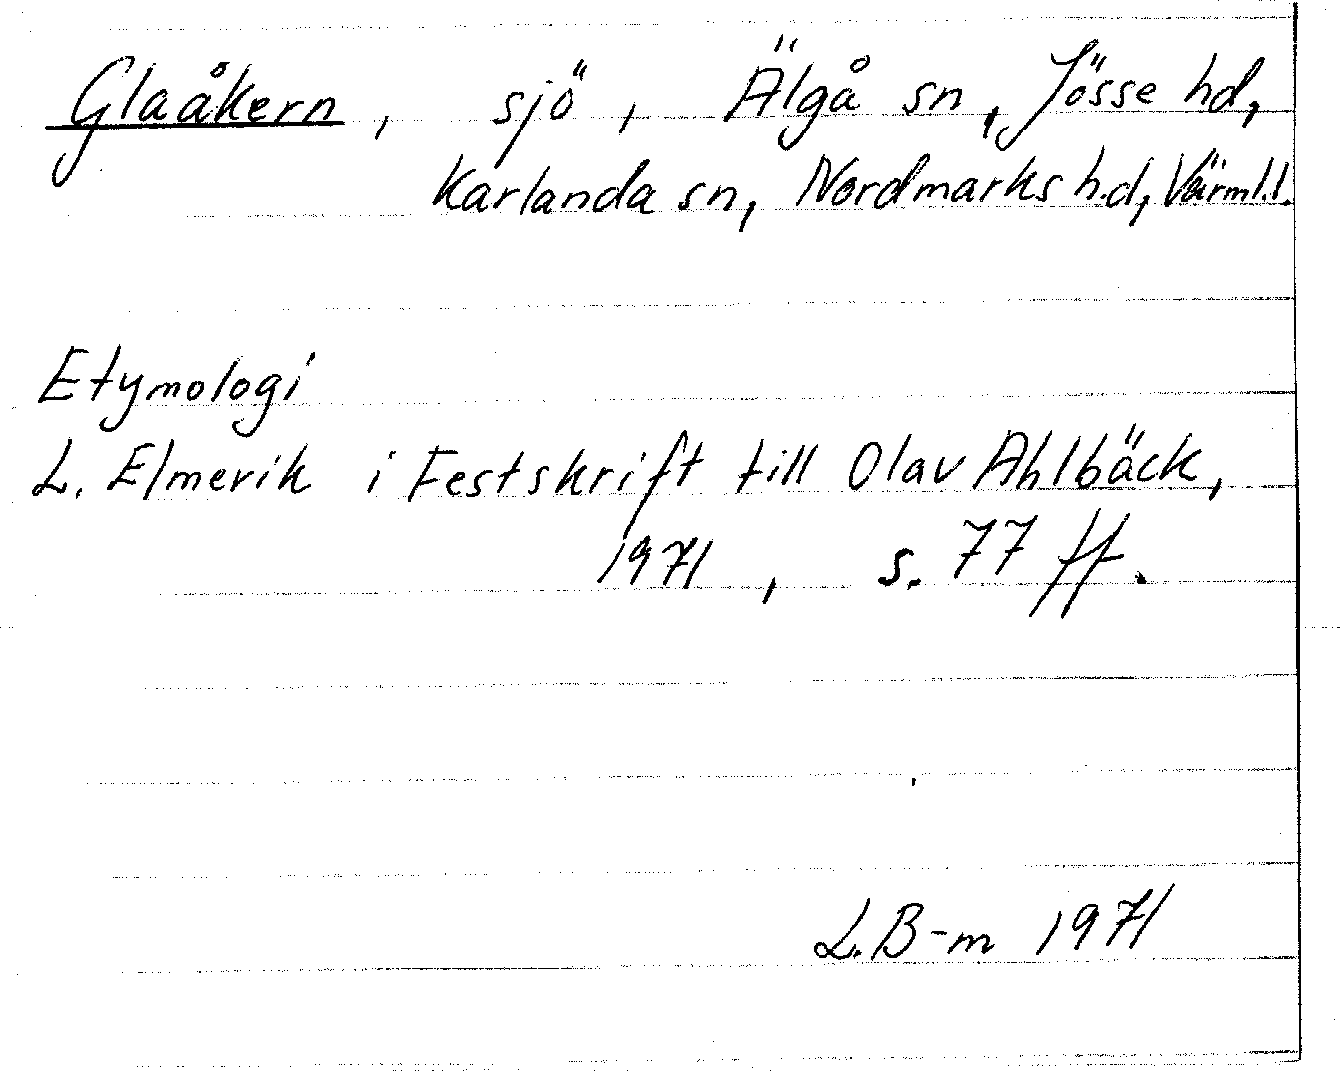 Glaåkern, sjö, Älgå sn, Jösse hd,
Karlanda sn, Nordmarks hd, Värml.l.
Etymologi
L. Elmevik i Festskrift till Olav Ahlbäck,
1971, s. 77 ff.
L. B-m 1971